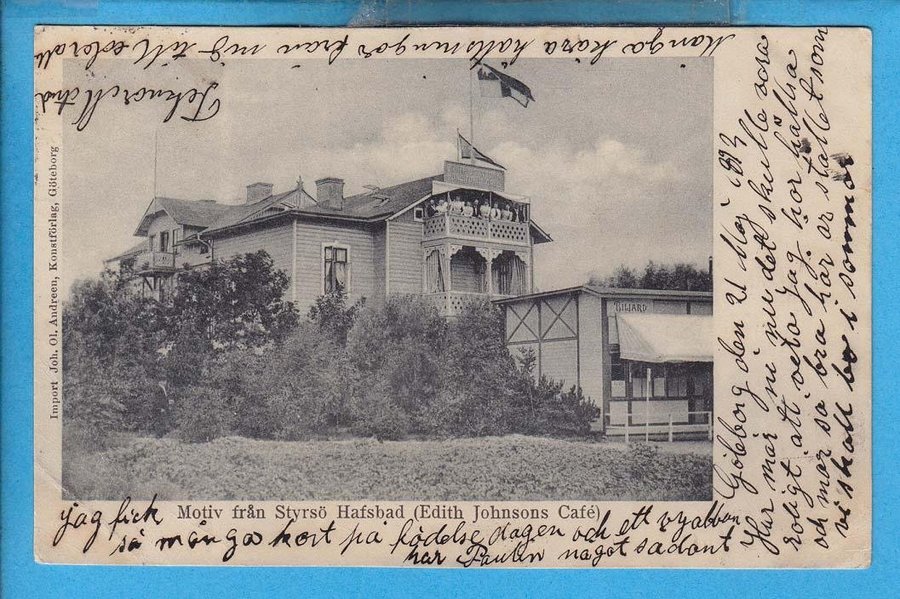 Många kära hälsningar från mig till eder alla
Import Joh. Ol. Andreen, Konstförlag, Göteborg
BILJARD
Göteborg den 21 Maj 1903
Hur mår ni nu det skulle vara
roligt att veta jag hör hälsa
och mår så bra här är stället som
vi skall bo i sommar
Motiv från Styrsö Hafsbad (Edith Johnsons Café)
jag fick
så många kort på födelsedagen och ett
har Paulin något sådant